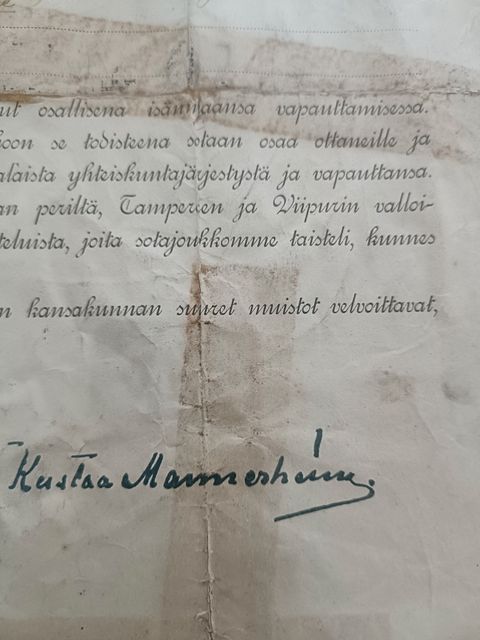 ut osallisena isänmaansa vapauttamisessa.
koon se todisteena sotaan osaa ottaneille ja
alaista yhteiskuntajärjestystä ja vapauttansa.
an periltä, Tampereen ja Viipurin valloi-
teluista, joita sotajoukkomme taisteli, kunnes
n kansakunnan suuret muistot velvoittavat,
Kustaa Mannerheim.